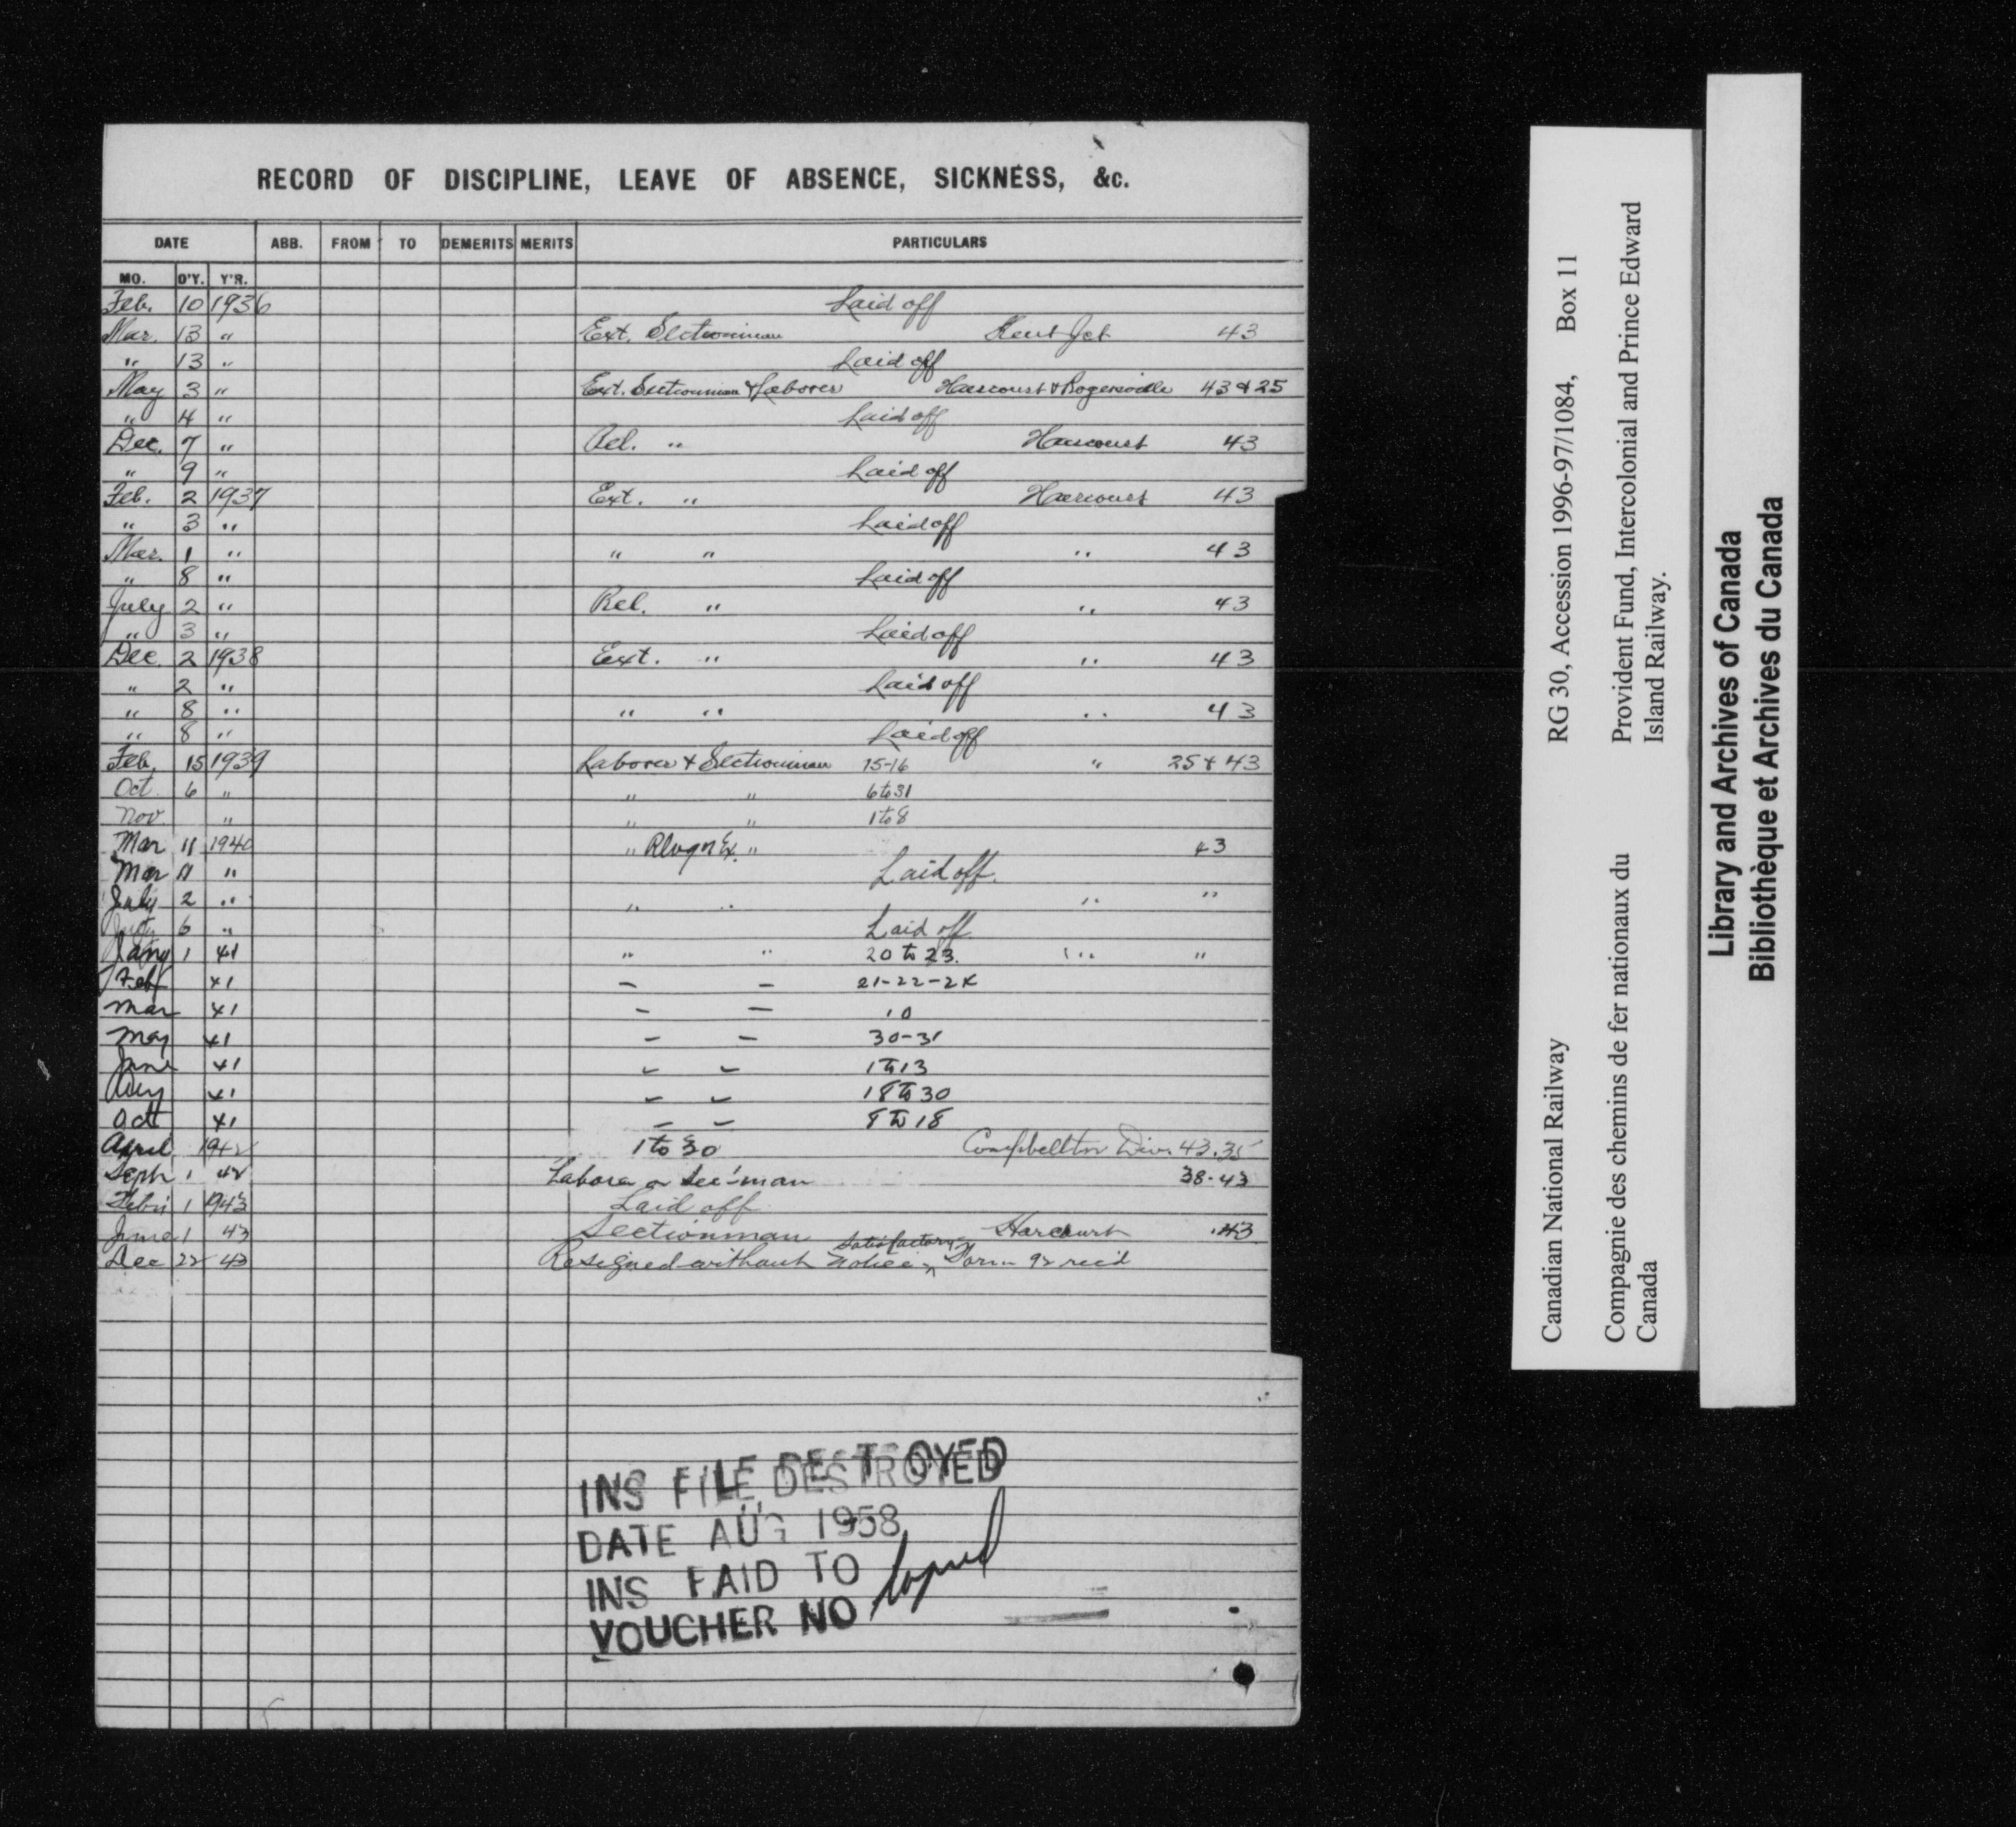 RECORD OF DISCIPLINE, LEAVE OF ABSENCE, SICKNESS, &c.
DATE ABB. FROM TO DEMERITS MERITS PARTICULARS
MO. D'Y. Y'R.
Feb. 10 1936 Laid off
Mar. 13 " Ext. Sectionman Kent Jct 43
" 13 " Laid off
May 3 " Ext. Sectionman & Laborer Harcourt & Rogersville 43 & 25
" 4 " Laid off
Dec. 7 " Rel. " Harcourt 43
" 9 " Laid off
Feb. 2 1937 Ext. " Harcourt 43
" 3 " Laid off
Mar. 1 " " " " 43
" 8 " Laid off
July 2 " Rel. " " 43
" 3 " Laid off
Dec. 2 1938 Ext. " " 43
" 2 " Laid off
" 8 " " " " 43
" 8 " Laid off
Feb. 15 1939 Laborer & Sectionman 15-16 " 25 & 43
Oct. 6 " " " 6 to 31
Nov. " " " 1 to 8
Mar 11 1940 " " 43
Mar 11 " Laid off.
July 2 " " " " "
July 6 " Laid off
Jany 1 41 " " 20 to 23. " "
Feb 41 - - 21-22-24
Mar 41 - - 10
May 41 - - 30-31
June 41 - - 1 to 13
Aug 41 - - 18 to 30
Oct 41 - - 8 to 18
April 1942 1 to 30 Campbellton Div. 43.35
Sept 1 42 Laborer or Sec'man 38-43
Feb 1 1943 Laid off
June 1 43 Sectionman Harcourt 43
Dec 22 43 Resigned without notice, satisfactory Form 92 rec'd
INS FILE DESTROYED
DATE AUG 1958
INS PAID TO
VOUCHER NO
Canadian National Railway RG 30, Accession 1996-97/1084, Box 11
Compagnie des chemins de fer nationaux du Canada
Provident Fund, Intercolonial and Prince Edward Island Railway.
Library and Archives of Canada
Bibliothèque et Archives du Canada